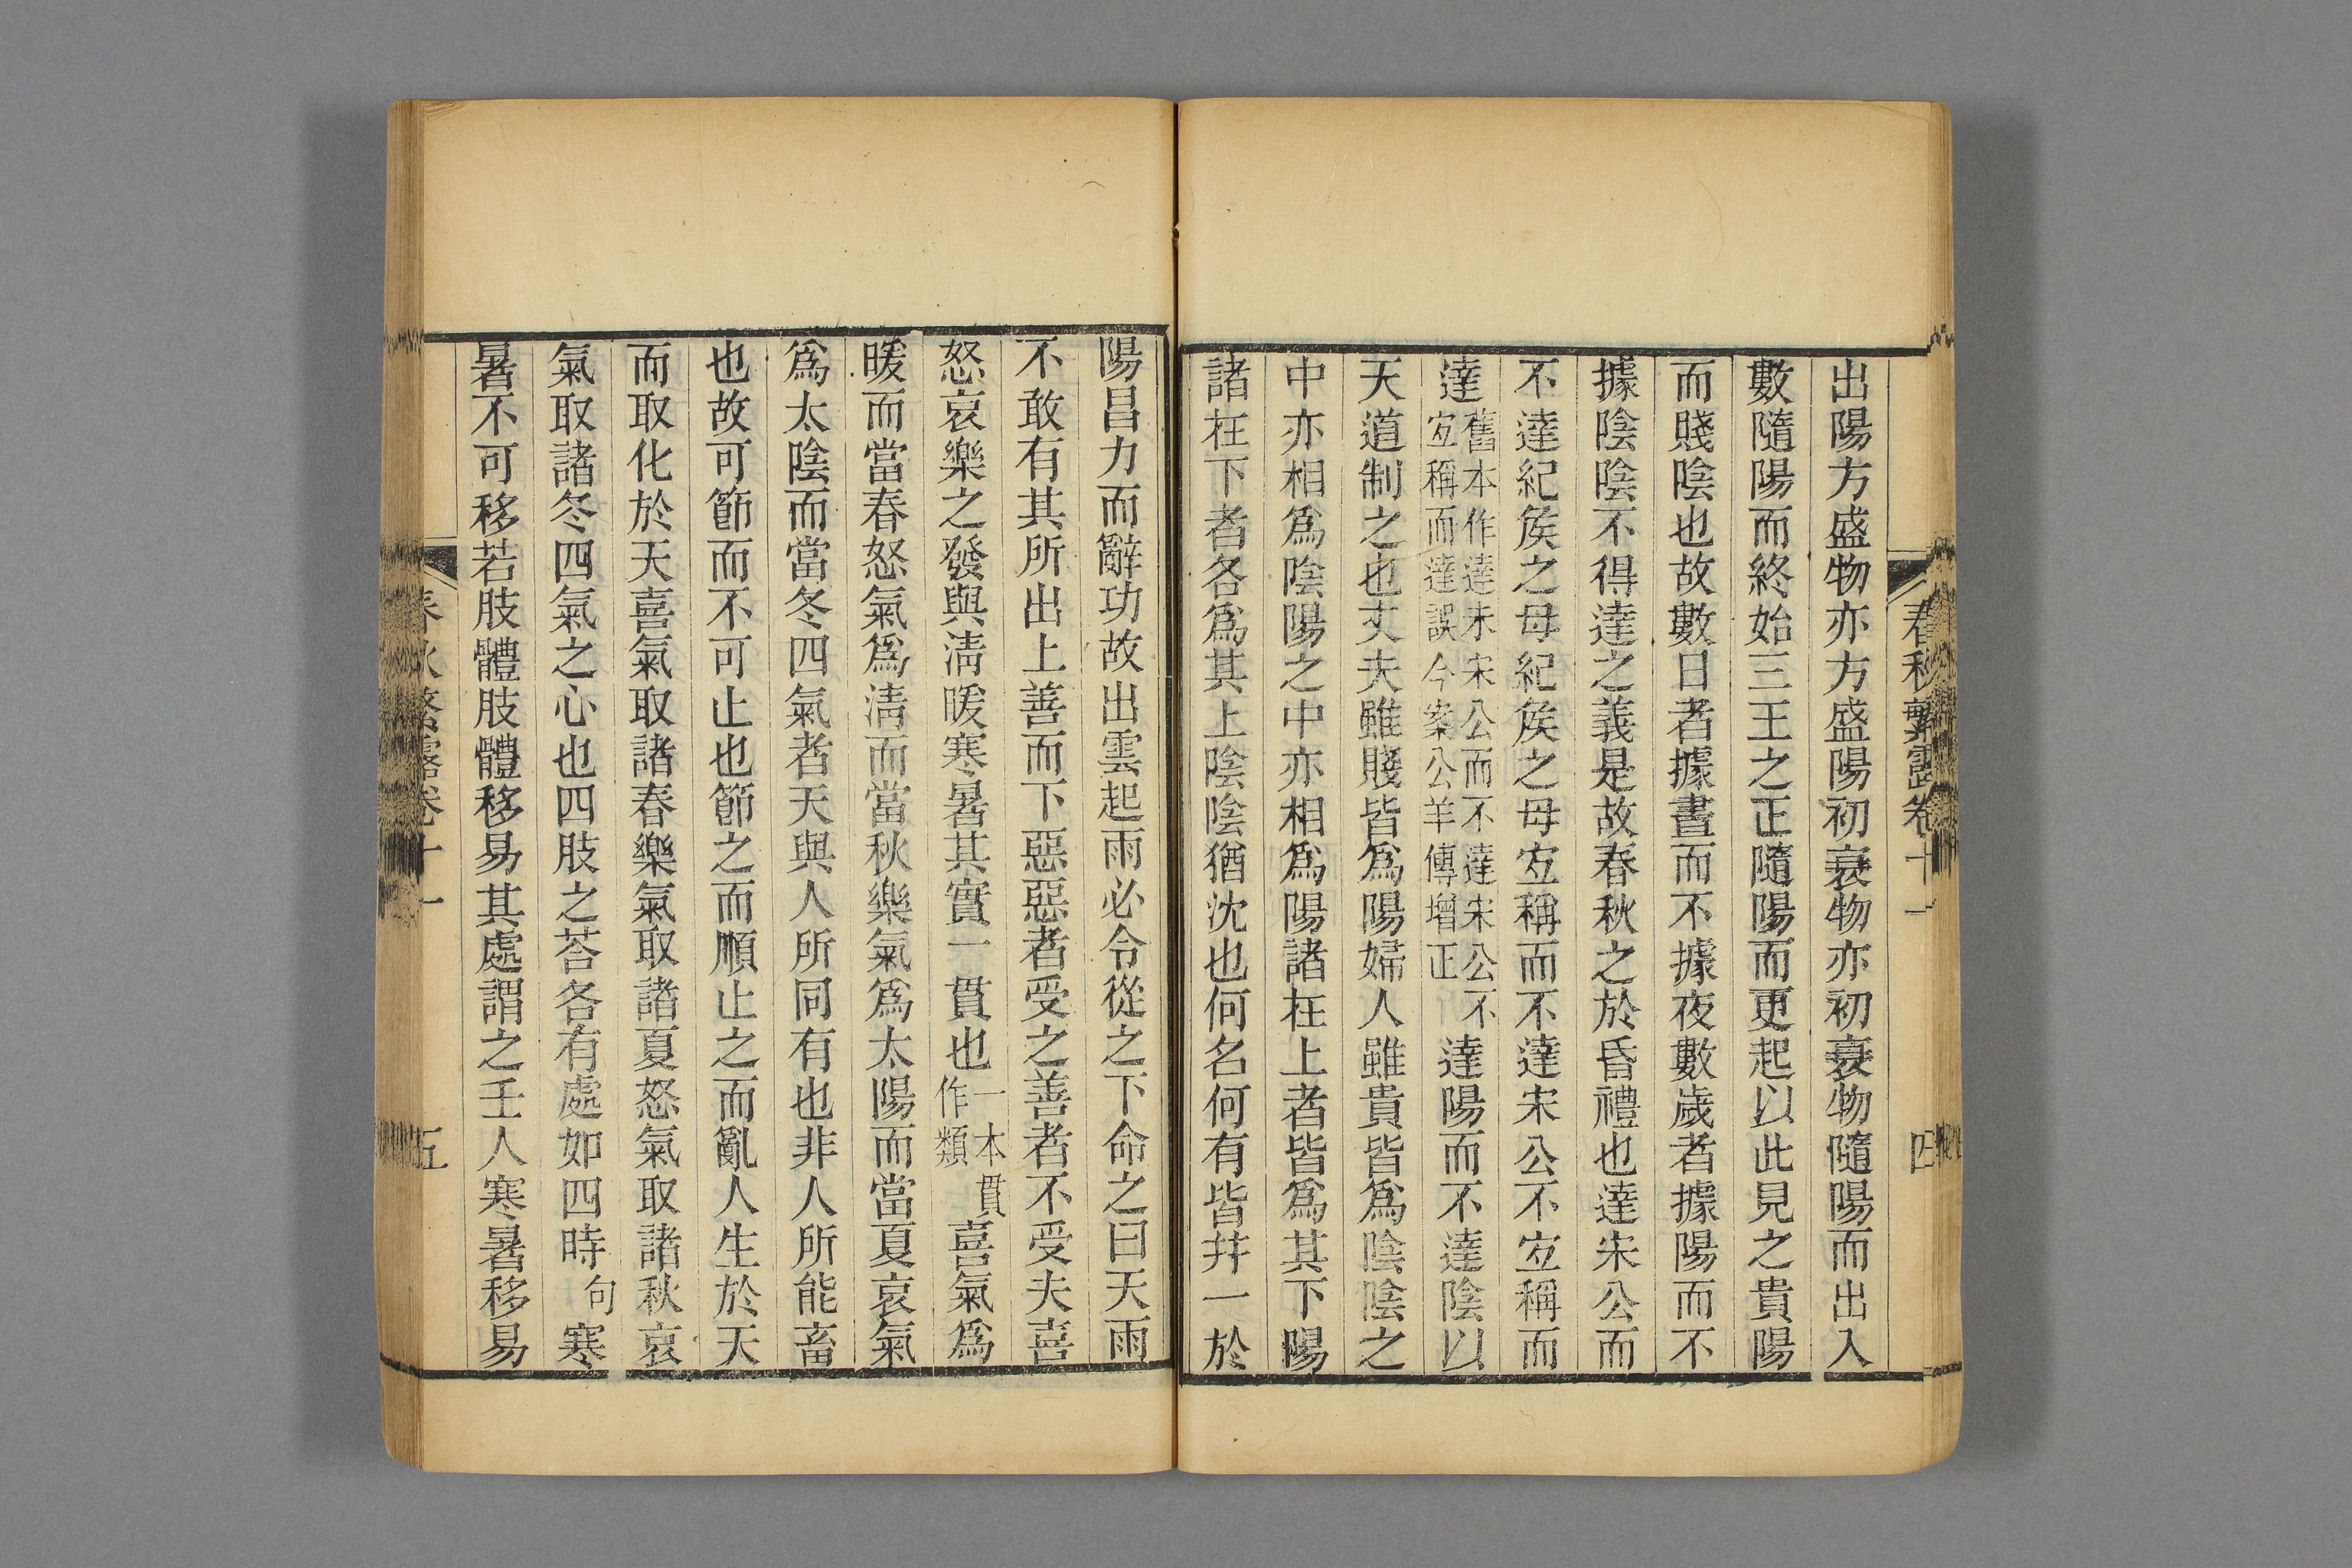 春秋繁露卷十一 四
出陽方盛物亦方盛陽初衰物亦初衰物隨陽而出入
數隨陽而終始三王之正隨陽而更起以此見之貴陽
而賤陰也故數日者據晝而不據夜數歲者據陽而不
據陰陰不得達之義是故春秋之於昏禮也達宋公而
不達紀矦之母紀矦之母宐稱而不達宋公不宐稱而
達舊本作達宋宋公而不達宋公不宐稱而達誤今案公羊傳增正達陽而不達陰以
天道制之也丈夫雖賤皆爲陽婦人雖貴皆爲陰陰之
中亦相爲陰陽之中亦相爲陽諸在上者皆爲其下陽
諸在下者各爲其上陰陰猶沈也何名何有皆并一於
陽昌力而辭功故出雲起雨必令從之下命之曰天雨
不敢有其所出上善而下惡惡者受之善者不受夫喜
怒哀樂之發與淸暖寒暑其實一貫也一本貫作類喜氣爲
暖而當春怒氣爲淸而當秋樂氣爲太陽而當夏哀氣
爲太陰而當冬四氣者天與人所同有也非人所能畜
也故可節而不可止也節之而順止之而亂人生於天
而取化於天喜氣取諸春樂氣取諸夏怒氣取諸秋哀
氣取諸冬四氣之心也四肢之荅各有處如四時句寒
暑不可移若肢體肢體移易其處謂之壬人寒暑移易
春秋繁露卷十一 五